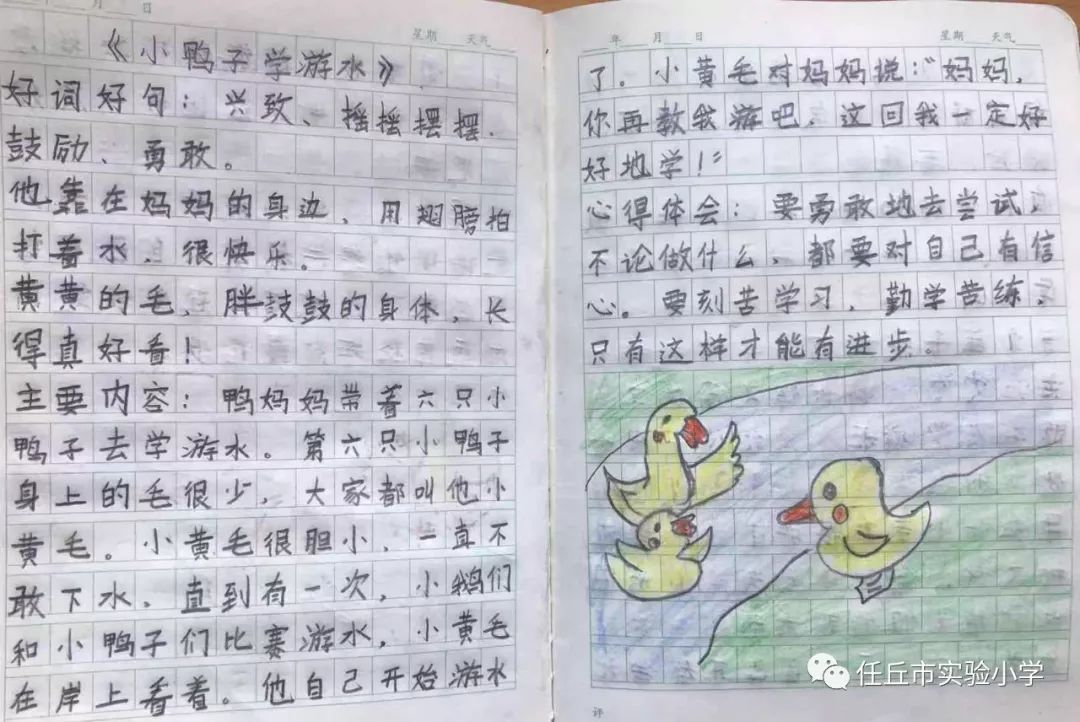 月 日
星期 天气
《小鸭子学游水》
好词好句：兴致、摇摇摆摆、
鼓励、勇敢。
他靠在妈妈的身边，用翅膀拍
打着水，很快乐。
黄黄的毛，胖鼓鼓的身体，长
得真好看！
主要内容：鸭妈妈带着六只小
鸭子去学游水。第六只小鸭子
身上的毛很少，大家都叫他小
黄毛。小黄毛很胆小，一直不
敢下水，直到有一次，小鹅们
和小鸭子们比赛游水，小黄毛
在岸上看着。他自己开始游水
年 月 日
星期 天气
了。小黄毛对妈妈说：“妈妈，
你再教我游吧，这回我一定好
好地学！”
心得体会：要勇敢地去尝试，
不论做什么，都要对自己有信
心。要刻苦学习，勤学苦练，
只有这样才能有进步。
评
任丘市实验小学